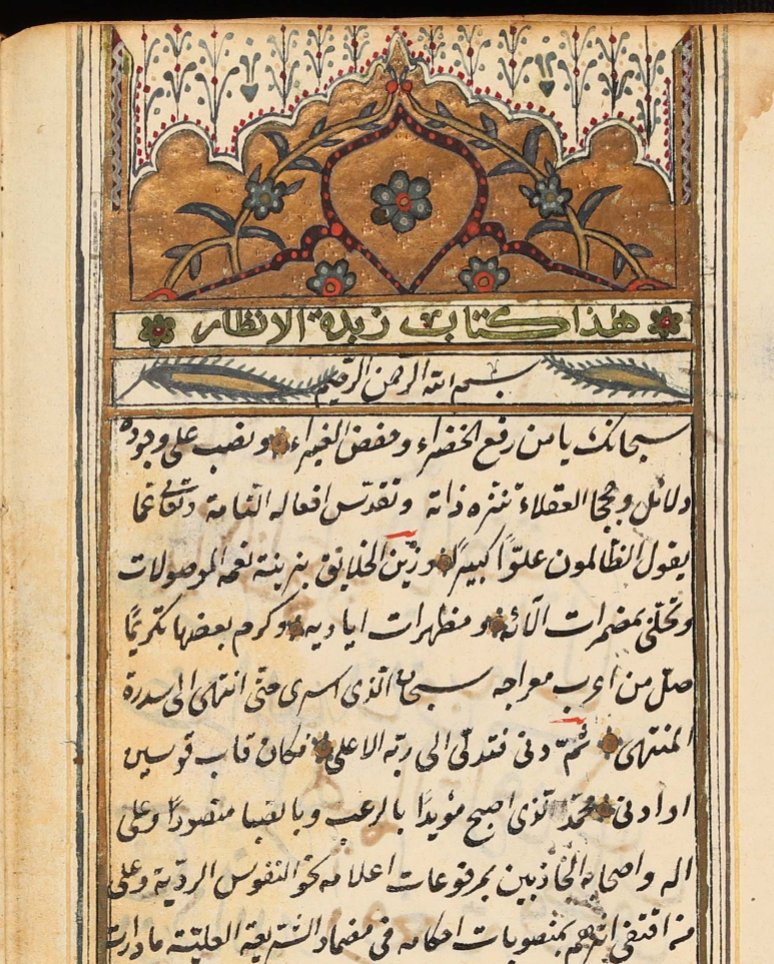 هذا كتاب زبدة الانظار
بسم الله الرحمن الرحيم
سبحانك يا من رفع الخضراء وخفض الغبراء ونصب على وجوده
دلائل وحججا العقلاء تنزه ذاته وتقدّس افعاله التامة وتعالى عما
يقول الظالمون علوّا كبيرا وزيّن الخلايق بزينة نعمه الموصولات
وتحلّى بمضمرات الآئه ومظهرات اياديه وكرم بعضها تكريمًا
صلّ من اعرب معراجه سبحان الّذى اسرى حتّى انتهى الى سدرة
المنتهى ثمّ دنى فتدلّى الى ربّه الاعلى فكان قاب قوسين
او ادنى محمّد الّذى اصبح مؤيدًا بالرعب وبالصبا منصورًا وعلى
اله واصحابه الجاذبين بمرفوعات اعلامه نحو النفوس الرديّة وعلى
من اقتفى اثرهم بمنصوبات احكامه فى مضمار الشريعة العليّة ما دارت